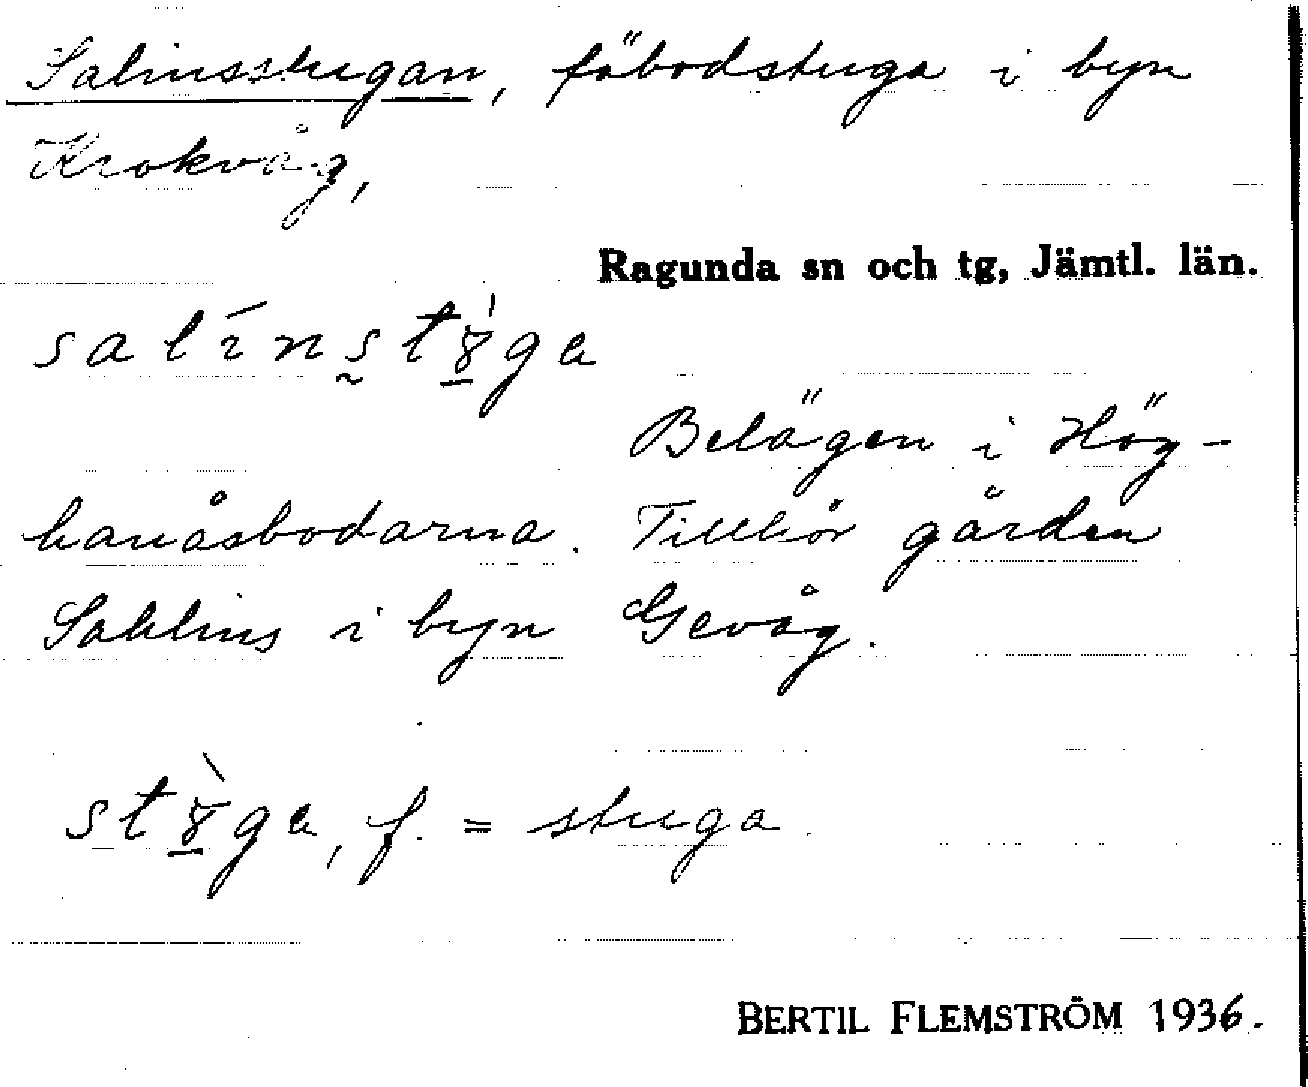 Salinsstugan, fäbodstuga i byn
Krokvåg,
Ragunda sn och tg, Jämtl. län.
Belägen i Hög-
hanåsbodarna. Tillhör gården
Sahlins i byn Gevåg.
f. = stuga
BERTIL FLEMSTRÖM 1936.